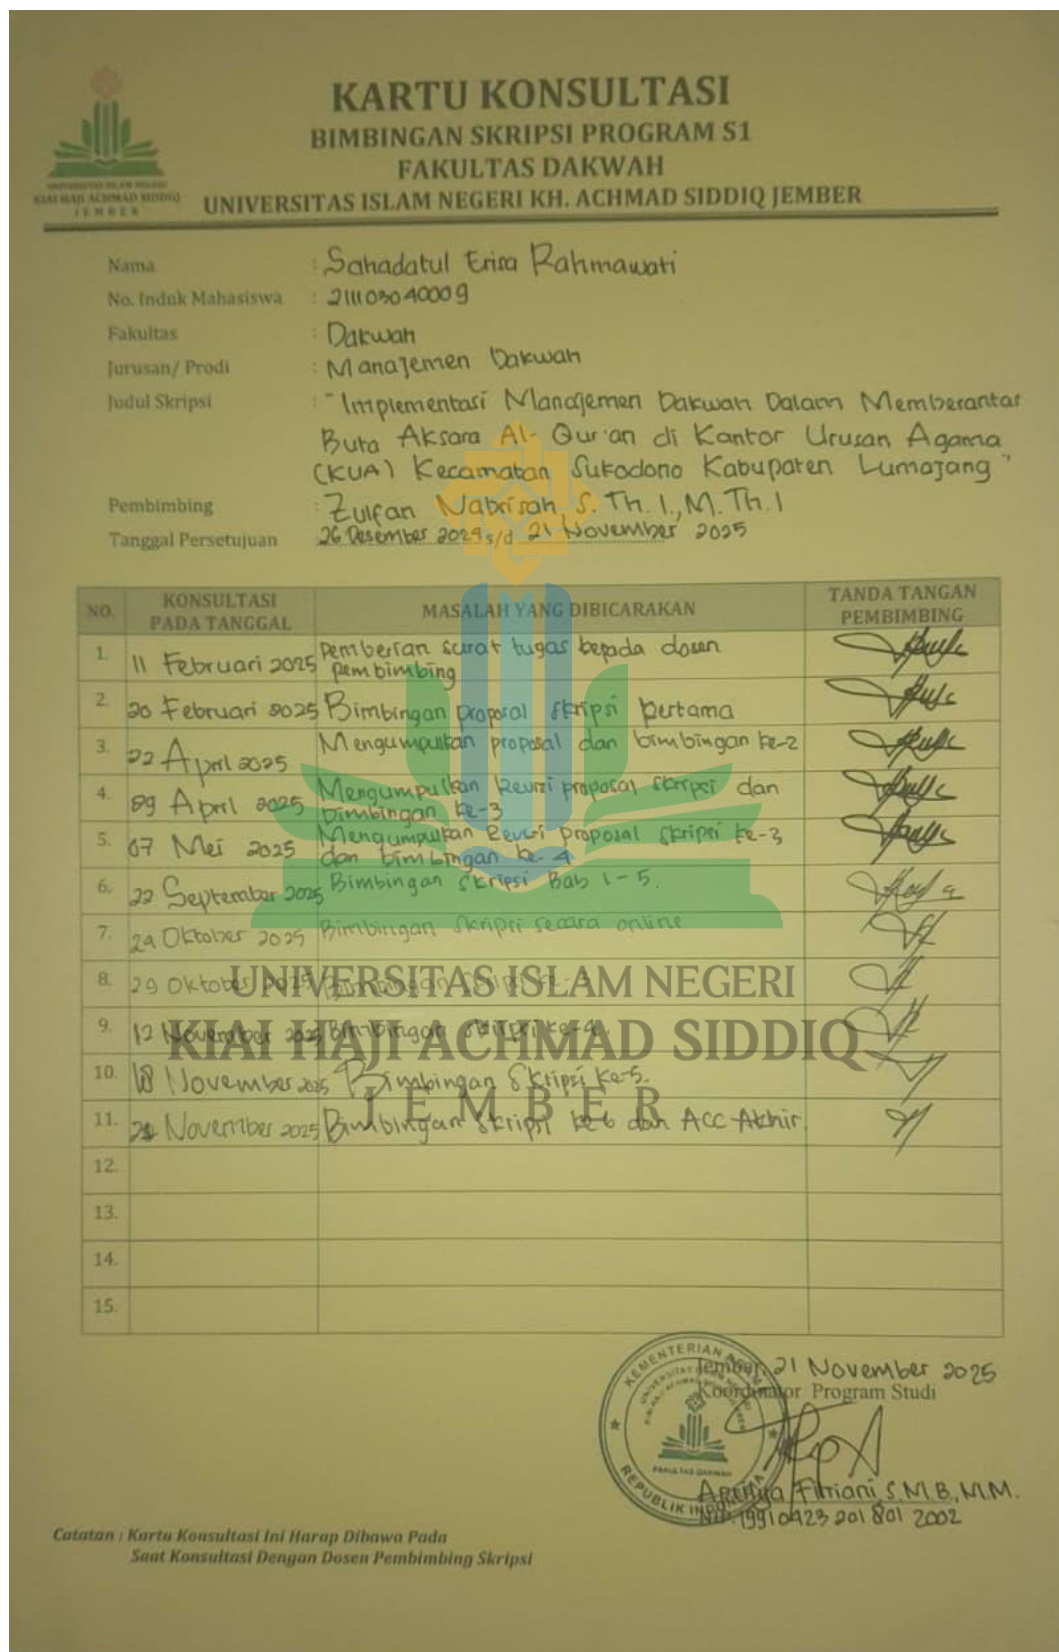 KARTU KONSULTASI
BIMBINGAN SKRIPSI PROGRAM S1
FAKULTAS DAKWAH
UNIVERSITAS ISLAM NEGERI KH. ACHMAD SIDDIQ JEMBER
UNIVERSITAS ISLAM NEGERI
KIAI HAJI ACHMAD SIDDIQ
JEMBER
Nama : Sahadatul Erisa Rahmawati
No. Induk Mahasiswa : 211103040009
Fakultas : Dakwah
Jurusan/ Prodi : Manajemen Dakwah
Judul Skripsi : "Implementasi Manajemen Dakwah Dalam Memberantas
Buta Aksara Al-Qur'an di Kantor Urusan Agama
(KUA) Kecamatan Sukodono Kabupaten Lumajang"
Pembimbing : Zulfan Nabrisah S.Th.I., M.Th.I
Tanggal Persetujuan : 26 Desember 2024 s/d 21 November 2025
NO. KONSULTASI PADA TANGGAL MASALAH YANG DIBICARAKAN TANDA TANGAN PEMBIMBING
1. 11 Februari 2025 Pemberian surat tugas kepada dosen
pembimbing
2. 20 Februari 2025 Bimbingan proposal skripsi pertama
3. 22 April 2025 Mengumpulkan proposal dan bimbingan ke-2
4. April 2025 Mengumpulkan Revisi proposal skripsi dan
bimbingan ke-3
5. 07 Mei 2025 Mengumpulkan Revisi proposal skripsi ke-3
dan bimbingan ke-4
6. 22 September 2025 Bimbingan Skripsi Bab 1-5.
7. Oktober 2025 Bimbingan Skripsi secara online
8. 29 Oktober 2025 Bimbingan Skripsi ke-3
9. 12 November 2025 Bimbingan Skripsi ke-4.
10. 18 November 2025 Bimbingan Skripsi ke-5.
11. 21 November 2025 Bimbingan Skripsi ke 6 dan ACC Akhir.
12.
13.
14.
15.
UNIVERSITAS ISLAM NEGERI
KIAI HAJI ACHMAD SIDDIQ
JEMBER
Jember, 21 November 2025
Koordinator Program Studi
KEMENTERIAN AGAMA
FAKULTAS DAKWAH
REPUBLIK INDONESIA
Aprilya Fitriani, S.M.B., M.M.
NIP. 19910423 201801 2002
Catatan : Kartu Konsultasi Ini Harap Dibawa Pada
Saat Konsultasi Dengan Dosen Pembimbing Skripsi